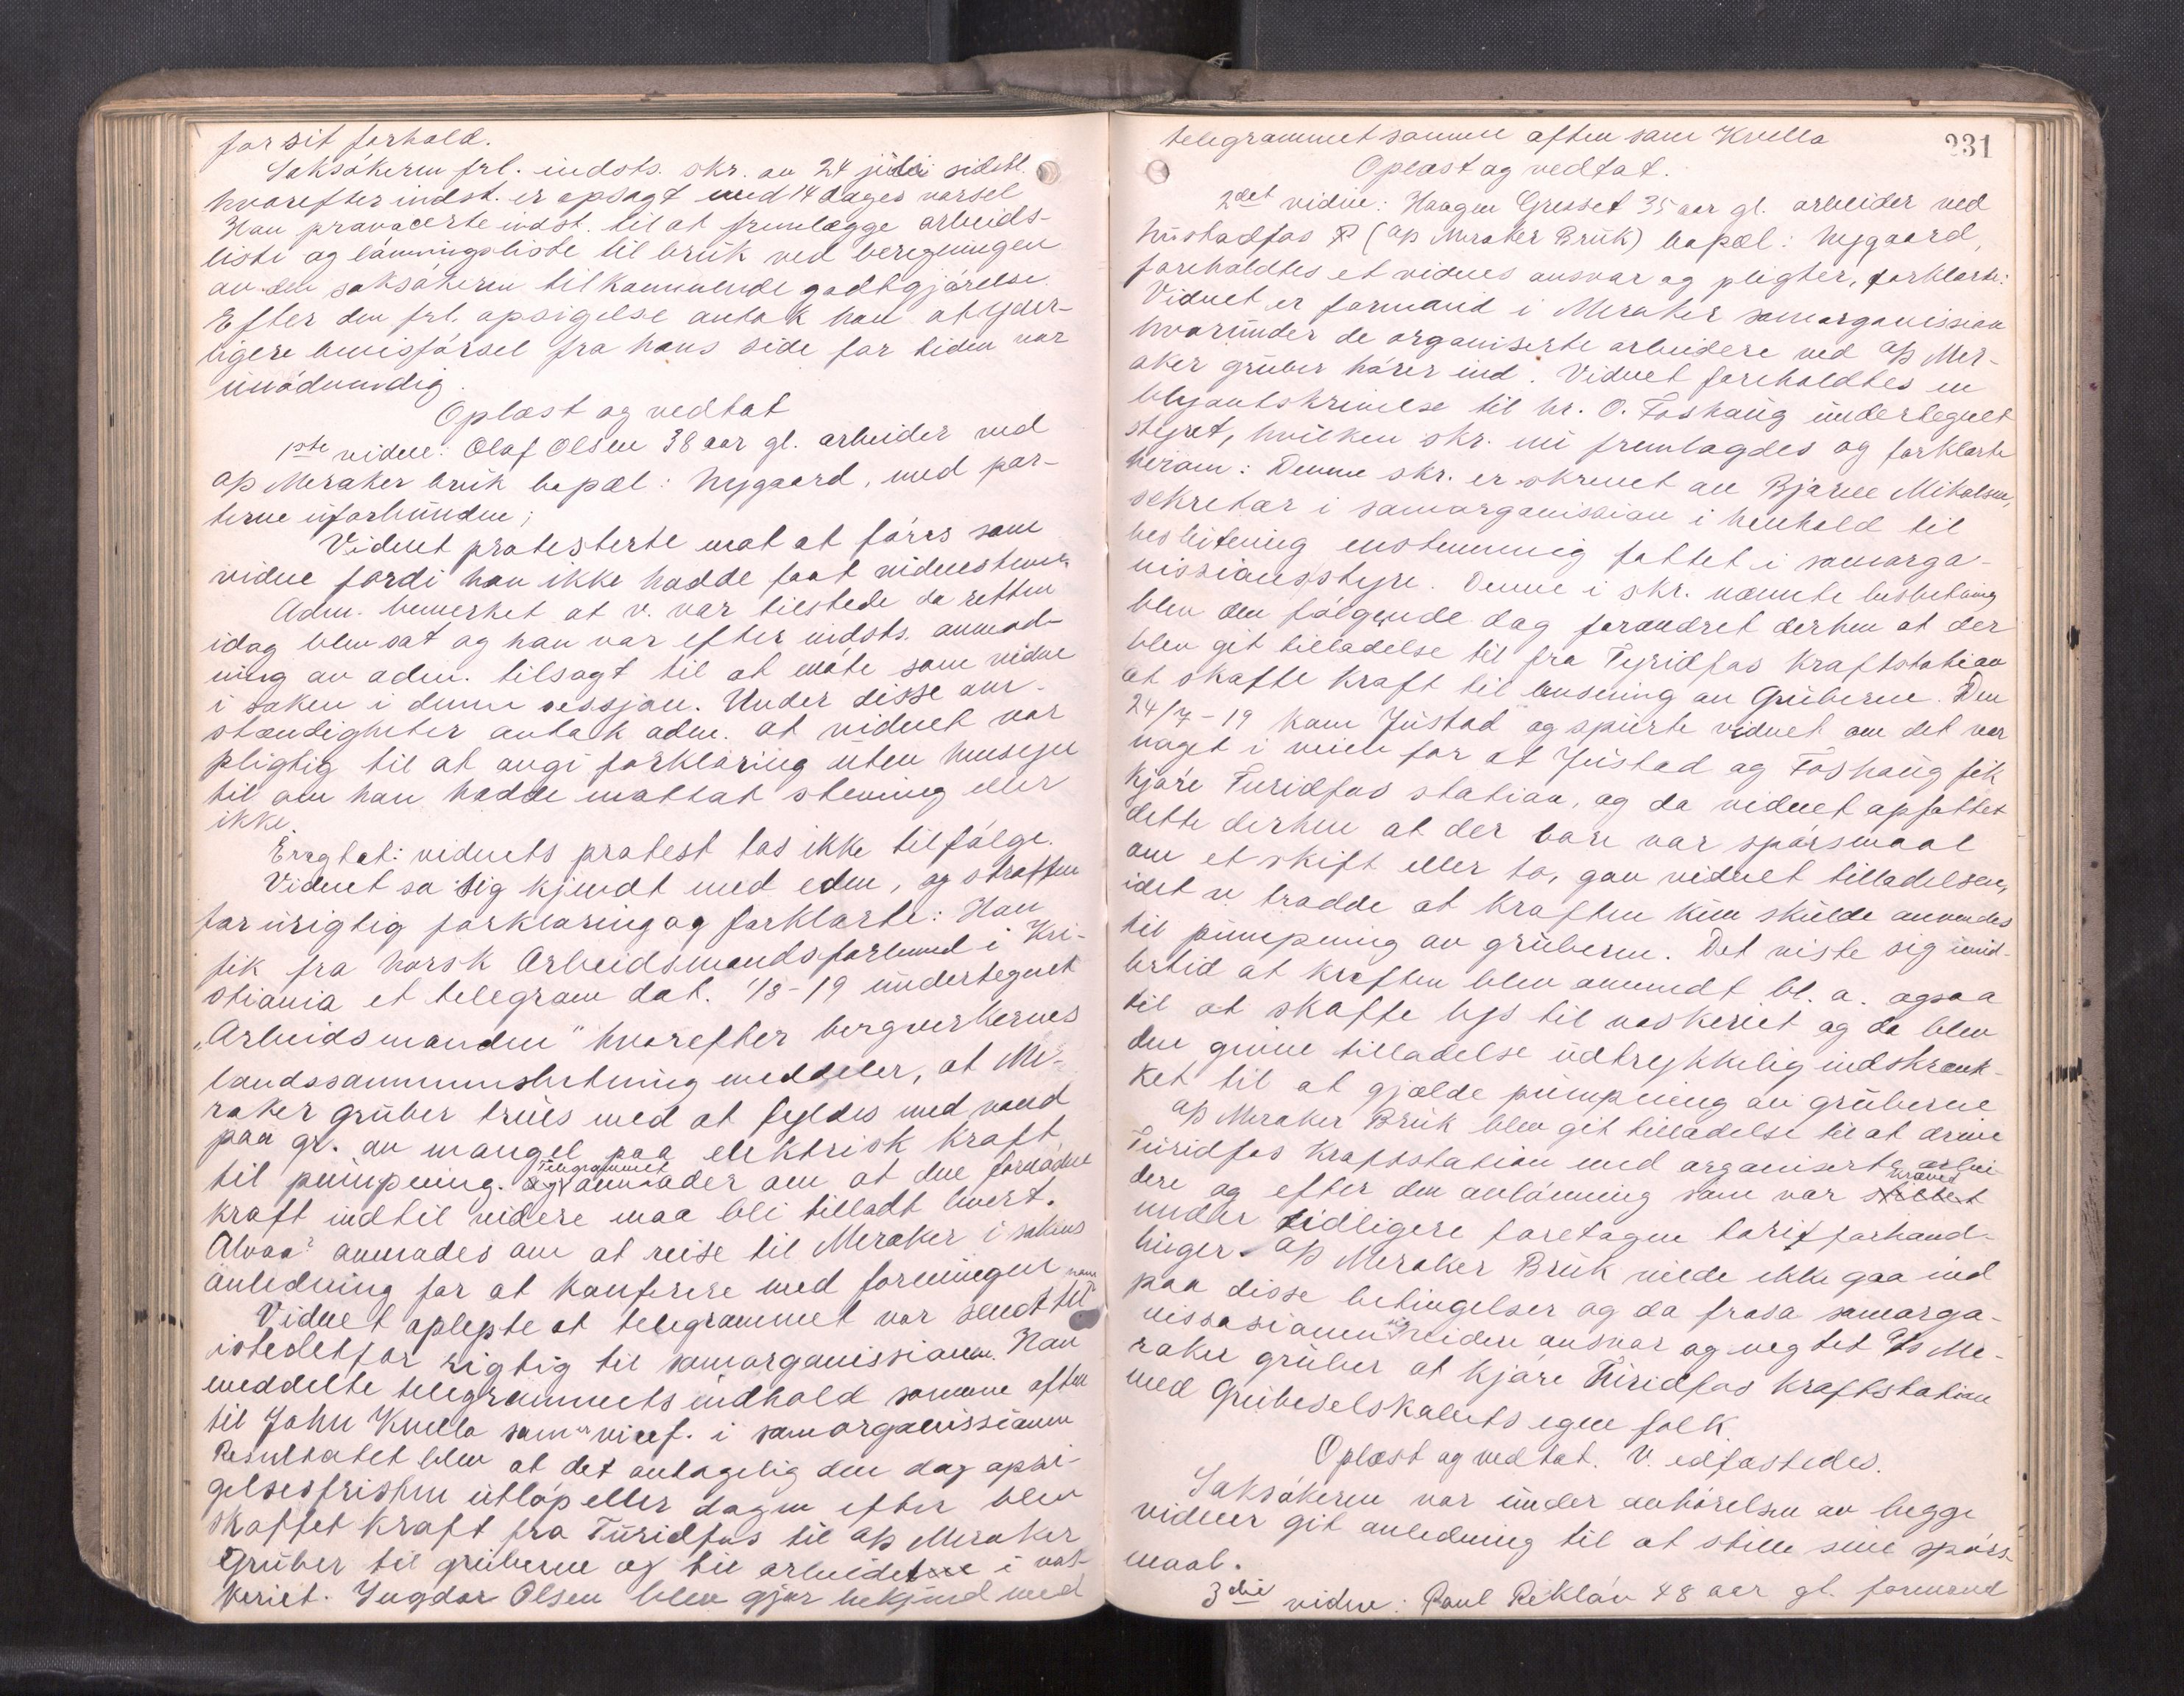 for sit forhold.
Saksøkeren frl. indsts. skr. av 24 juli sidstl.
hvorefter indst. er opsagt med 14 dages varsel
Han provocerte indst. til at fremlægge arbeids-
liste og lønningsliste til bruk ved beregningen
av den saksøkeren tilkommende godtgjørelse.
Efter den frl. opsigelse antok han at yder-
ligere bevisførsel fra hans side for tiden var
unødvendig.
Oplæst og vedtat
1ste vidne: Olaf Olsen 38 aar gl. arbeider ved
A/S Meraker bruk bopæl: Nygaard, med par-
terne uforbunden;
Vidnet protesterte mot at føres som
vidne fordi han ikke hadde faat vidnestevn.
Adm. bemerket at v. var tilstede da retten
idag blev sat og han var efter indsts. anmod-
ning av adm. tilsagt til at møte som vidne
i saken i denne sessjon. Under disse om-
stændigheter antok adm. at vidnet var
pligtig til at avgi forklaring uten hensyn
til om han hadde mottat stevning eller
ikke.
Eragtet: vidnets protest tas ikke tilfølge.
Vidnet sa sig kjendt med eden, og straffen
for urigtig forklaring og forklarte: Han
fik fra Norsk Arbeidsmandsforbund i Kri-
stiania et telegram dat. 1/8-19 undertegnet
"Arbeidsmanden" hvorefter bergverkernes
landssammenslutning meddeler, at Me-
raker gruber trues med at fyldes med vand
paa gr. av mangel paa elektrisk kraft
til pumpning. og Telegrammet anmoder om at den fornødne
kraft indtil videre maa bli tilladt levert.
Alvaa? anmodes om at reise til Meraker i sakens
anledning for at konferere med foreningen
Vidnet oplyste at telegrammet var sendt til ham
istedetfor rigtig til samorganissionen. Han
meddelte telegrammets indhold samme aften
til John Kvello som er vicef. i samorganissionen
Resultatet blev at det antagelig den dag opsi-
gelsesfristen utløp eller dagen efter blev
skaffet kraft fra Turidfos til A/S Meraker
Gruber til gruberne og til arbeidet i vas-
keriet. Ingdar Olsen blev gjor bekjend med
231
telegrammet samme aften som Kvello
Oplæst og vedtat.
2det vidne: Haagen Gresset 35 aar gl. arbeider ved
Nustadfos (A/S Meraker Bruk) bopæl: Nygaard,
foreholdtes et vidnes ansvar og pligter, forklarte:
Vidnet er formand i Meraker samorganission
hvorunder de organiserte arbeidere ved A/S Mer-
aker gruber hører ind. Vidnet foreholdtes en
blyantskrivelse til hr. O. Foshaug undertegnet
styret, hvilken skr. nu fremlagdes og forklarte
herom: Denne skr. er skrevet av Bjarne Mikalsen,
sekretær i samorganission i henhold til
beslutning enstemmig fattet i samorga-
nissionsstyre. Denne i skr. nævnte beslutning
blev den følgende dag forandret derhen at der
blev git tilladelse til fra Tyridfos kraftstation
at skaffe kraft til lensning av Gruberne. Den
24/7-19 kom Justad og spurte vidnet om det var
noget i veien for at Justad og Foshaug fik
kjøre Turidfos station, og da vidnet opfattet
dette derhen at der bare var spørsmaal
om et skift eller to, gav vidnet tilladelsen,
idet v. trodde at kraften kun skulde anvendes
til pumpning av gruberne. Det viste sig imid-
lertid at kraften blev anvendt bl. a. ogsaa
til at skaffe lys til vaskeriet og da blev
den givne tilladelse udtrykkelig indskrænk-
ket til at gjælde pumpning av gruberne
A/S Meraker Bruk blev git tilladelse til at drive
Turidfos Kraftstation med organiserte arbei
dere og efter den avlønning som var krævet
under tidligere foretagne tarifforhand-
linger. A/S Meraker Bruk vilde ikke gaa ind
paa disse betingelser og da frasa samorga-
nissasionen sig videre ansvar og negtet A/S Me-
raker gruber at kjøre Turidfos kraftstation
med Grubeselskabets egne folk.
Oplæst og vedtat. V. edfæstedes.
Saksøkeren var under avhørelsen av begge
vidner git anledning til at stille sine spørs-
maal.
3die vidne: Paul Reklav 48 aar gl. formand